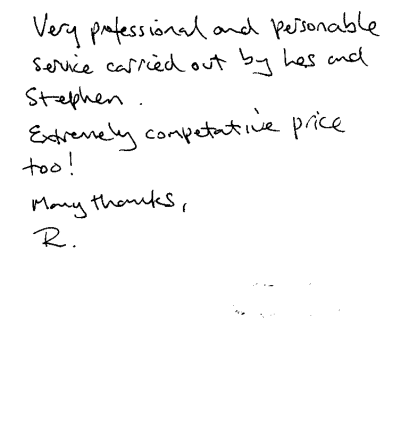 Very professional and personable
service carried out by Les and
Stephen.
Extremely competative price
too!
Many thanks,
R.